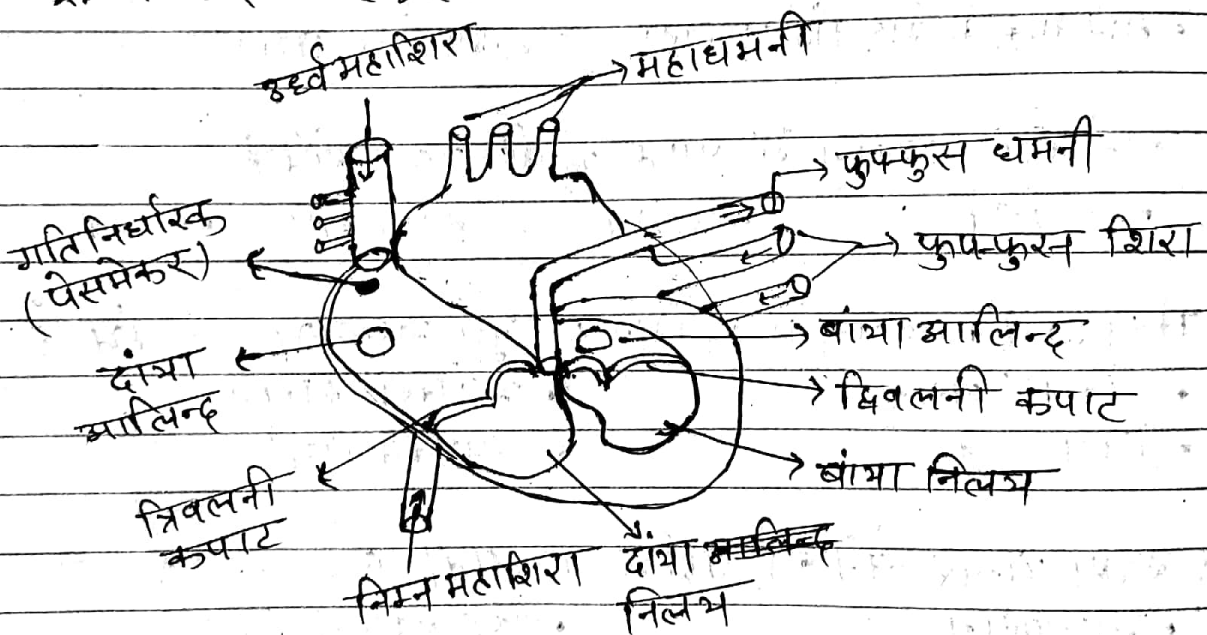 उर्ध्व महाशिरा
महाधमनी
फुफ्फुस धमनी
गतिनिर्धारक
(पेसमेकर)
फुफ्फुस शिरा
बांया आलिन्द
दांया
आलिन्द
द्विवलनी कपाट
बांया निलय
त्रिवलनी
कपाट
निम्न महाशिरा
दांया आलिन्द
निलय